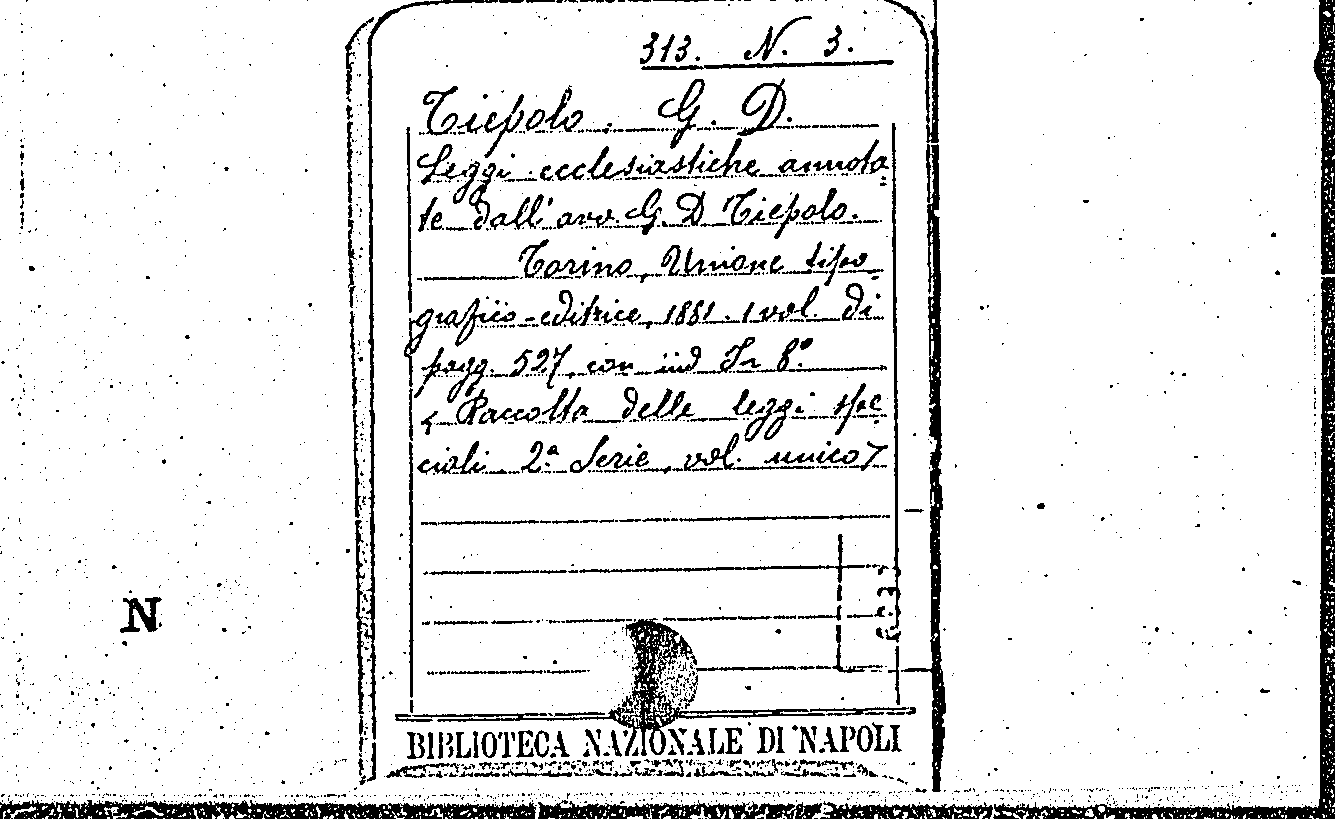 313. N. 3.
Tiepolo. G. D.
Leggi ecclesiastiche annota=
te dall'avv. G. D Tiepolo.
Torino, Unione tipo=
grafico-editrice, 1881. 1 vol. di
pagg. 527, con ind In 8.º
< Raccolta delle leggi spe=
ciali. 2.ª Serie, vol. unico >
N
BIBLIOTECA NAZIONALE DI NAPOLI